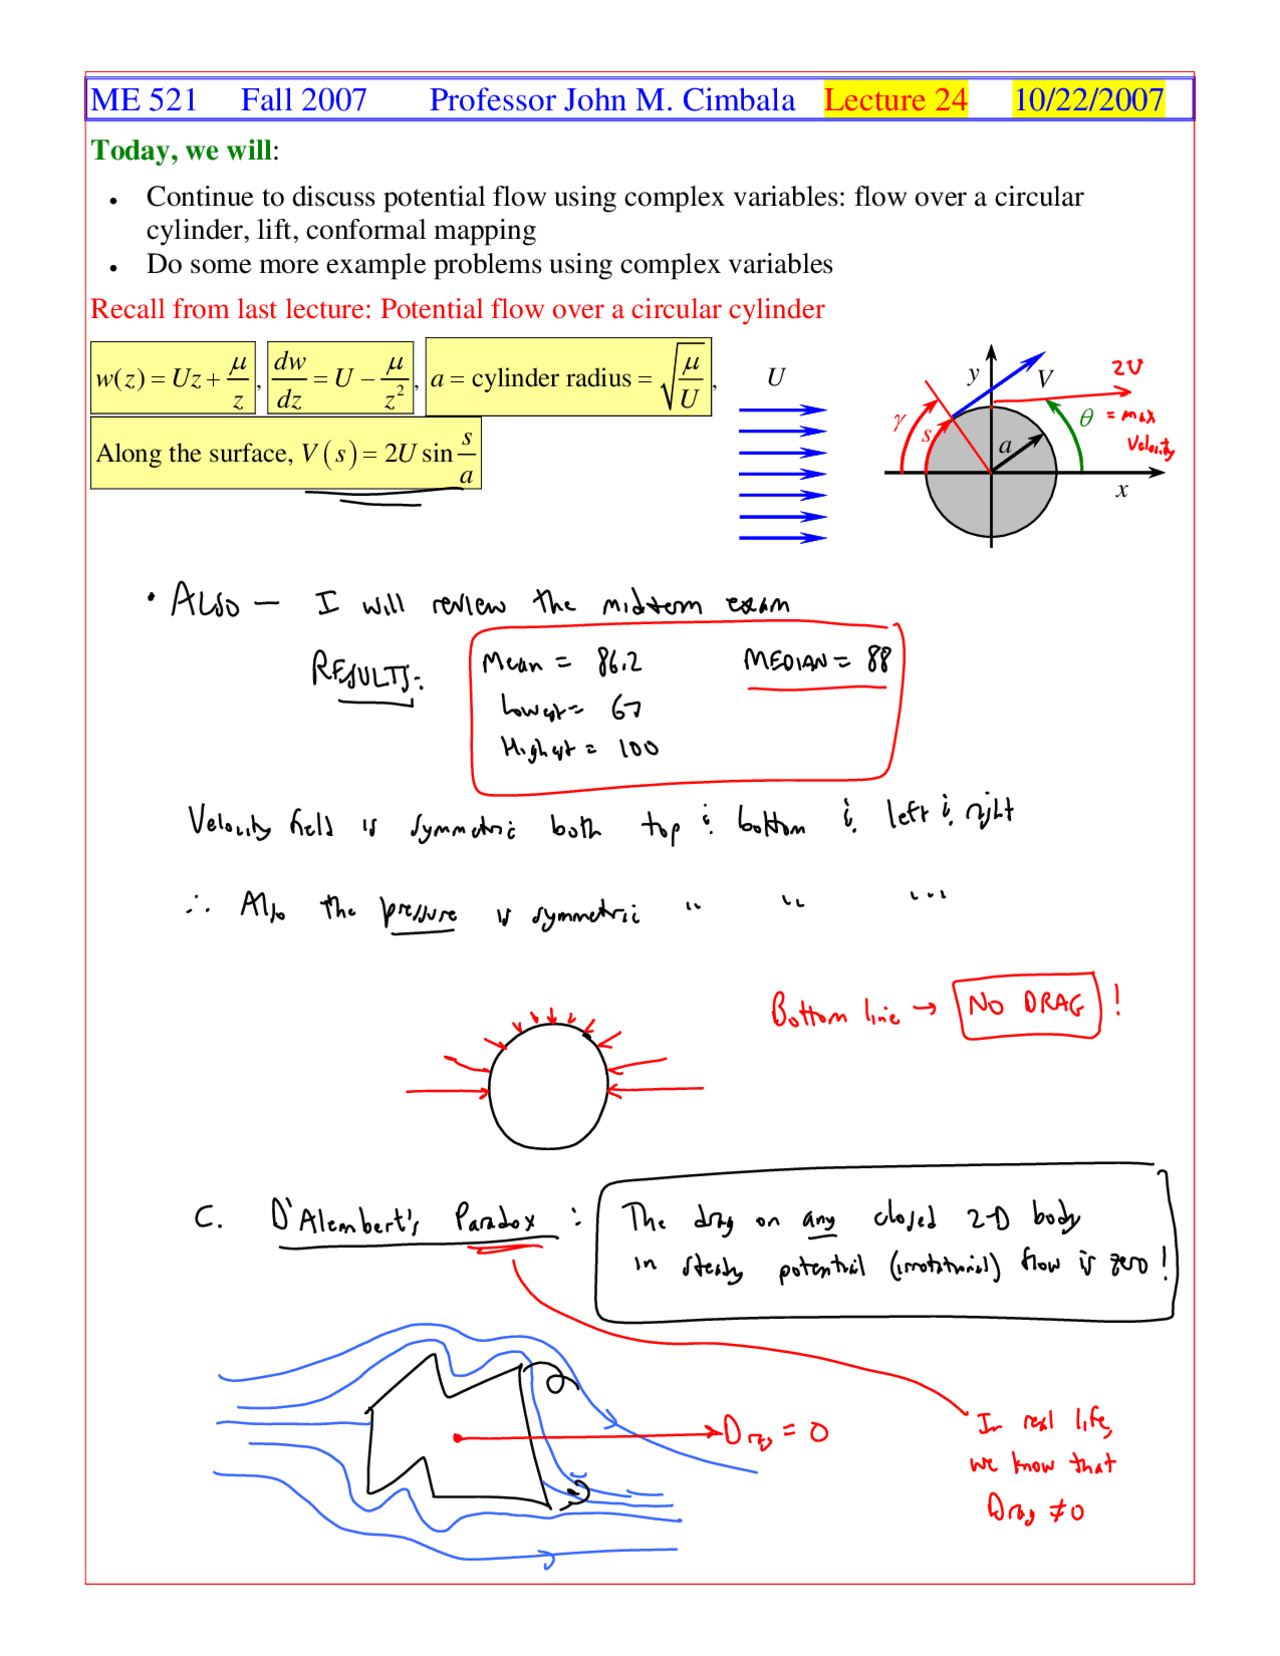 ME 521 Fall 2007 Professor John M. Cimbala Lecture 24 10/22/2007
Today, we will:
• Continue to discuss potential flow using complex variables: flow over a circular
cylinder, lift, conformal mapping
• Do some more example problems using complex variables
Recall from last lecture: Potential flow over a circular cylinder
w(z) = Uz + μ/z , dw/dz = U − μ/z² , a = cylinder radius = √(μ/U) ,
Along the surface, V(s) = 2U sin s/a
U
y
V
2U
γ
s
a
θ
= max
Velocity
x
• ALSO — I will review the midterm exam
RESULTS:
Mean = 86.2 MEDIAN = 88
Lowest = 67
Highest = 100
Velocity field is symmetric both top & bottom & left & right
∴ Also the pressure is symmetric " " "'
Bottom line → NO DRAG !
C. D'Alembert's Paradox : The drag on any closed 2-D body
in steady potential (irrotational) flow is zero!
Drag = 0
In real life,
we know that
Drag ≠ 0